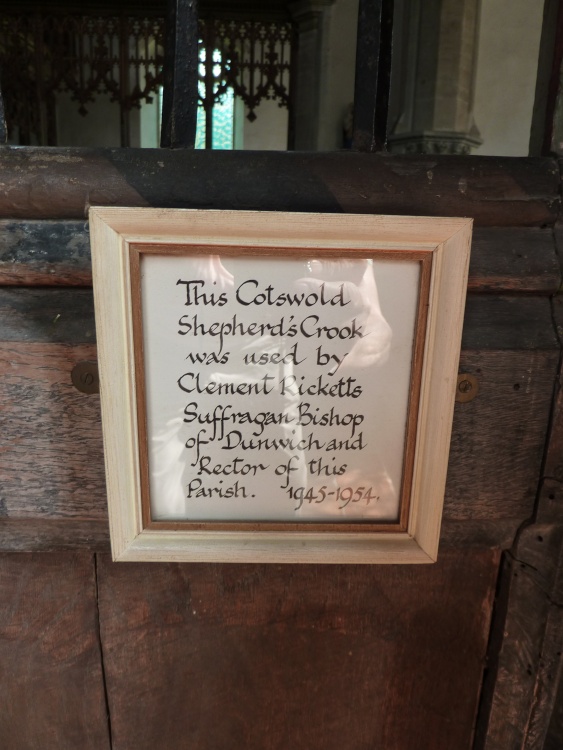 This Cotswold
Shepherd's Crook
was used by
Clement Ricketts
Suffragan Bishop
of Dunwich and
Rector of this
Parish. 1945-1954.